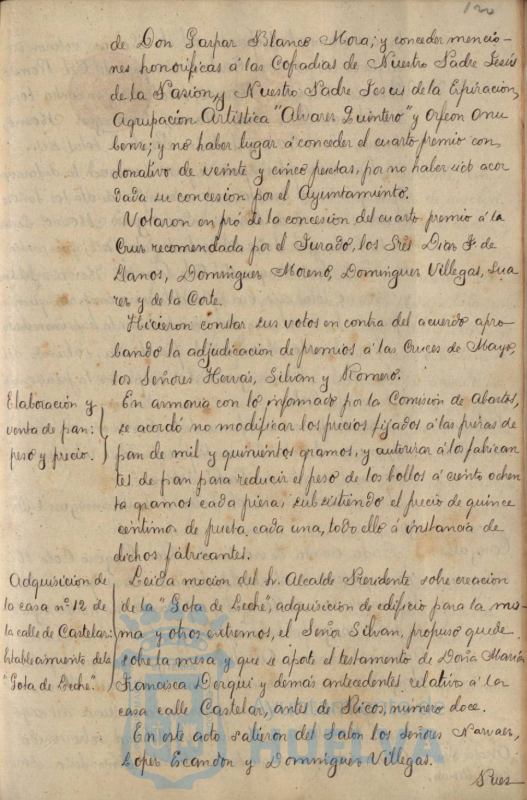 120
de Don Gaspar Blanco Mora; y conceder mencio-
nes honorificas á las Cofadias de Nuestro Padre Jesús
de la Pasion, y Nuestro Padre Jesus de la Espiración,
Agrupación Artística "Alvarez Quintero" y Orfeon Onu
bense; y no haber lugar á conceder el cuarto premio con
donativo de veinte y cinco pesetas, por no haber sido acor
dada su concesion por el Ayuntamiento.
Votaron en pró de la concesion del cuarto premio á la
Cruz recomendada por el Jurado, los Sres Diaz F. de
Llanos, Dominguez Moreno, Dominguez Villegas, Sua
rez y de la Corte.
Hicieron constar sus votos en contra del acuerdo apro
bando la adjudicación de premios á las Cruces de Mayo,
los Señores Hervás, Silvan y Romero.
Elaboración y
venta de pan:
peso y precio.
En armonia con lo informado por la Comisión de Abastos,
se acordó no modificar los precios fijados á las piezas de
pan de mil y quinientos gramos, y autorizar á los fabrican
tes de pan para reducir el peso de los bollos á ciento ochen
ta gramos cada pieza, subsistiendo el precio de quince
centimos de peseta cada una, todo ello á instancia de
dichos fabricantes.
Adquisición de
la casa nº 12 de
la calle de Castelar:
Establecimiento de la
"Gota de Leche".
Leida moción del Sr. Alcalde Presidente sobre creacion
de la "Gota de Leche", adquisicion de edificio para la mis-
ma y otros extremos, el Señor Silvan, propuso quede
sobre la mesa y que se aporte el testamento de Doña Maria
Francisca Dergui y demás antecedentes relativo á la
casa calle Castelar, antes de Ricos, número doce.
En este acto salieron del Salon los Señores Narvaez,
Lopez Escandon y Dominguez Villegas.
Puez
HUELVA